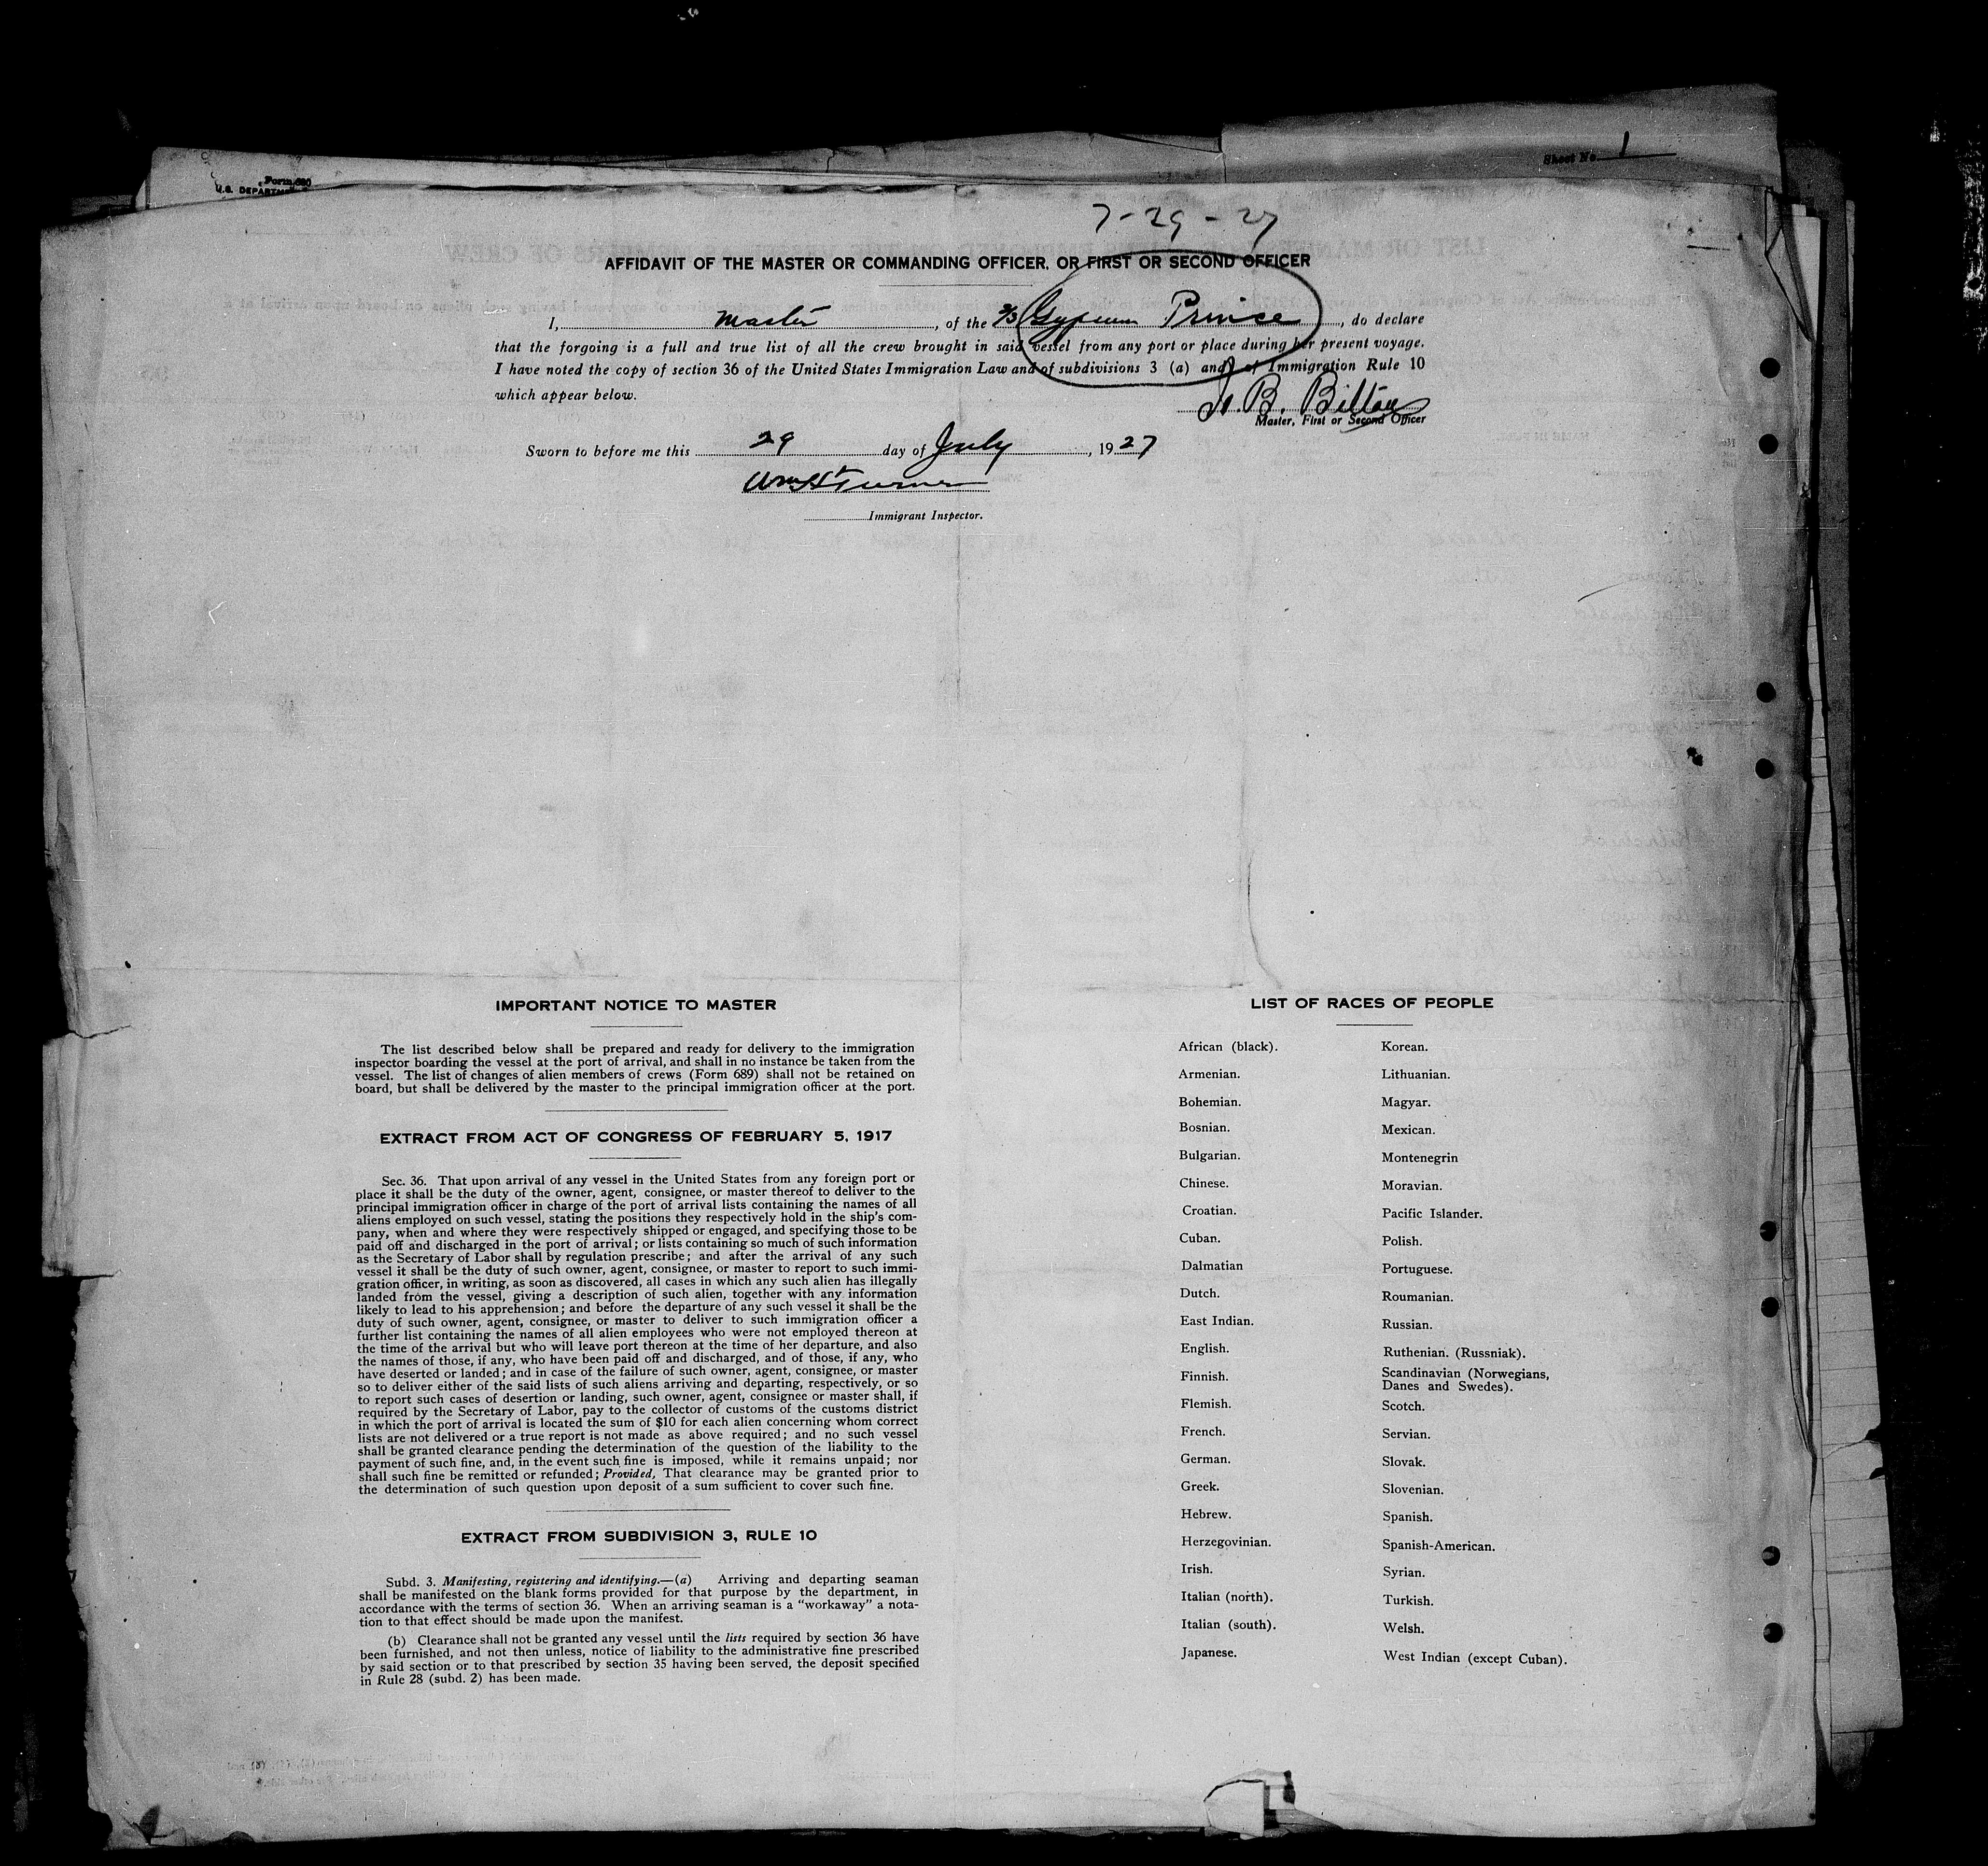 Form 680
U.S. DEPARTM
Sheet No. 1
7-29-27
AFFIDAVIT OF THE MASTER OR COMMANDING OFFICER, OR FIRST OR SECOND OFFICER
I, Master, of the S/S Gypsum Prince, do declare
that the forgoing is a full and true list of all the crew brought in said vessel from any port or place during her present voyage.
I have noted the copy of section 36 of the United States Immigration Law and of subdivisions 3 (a) and of Immigration Rule 10
which appear below.
B. Bilton
Master, First or Second Officer
Sworn to before me this 29 day of July, 1927
Wm H Turner
Immigrant Inspector.
IMPORTANT NOTICE TO MASTER
The list described below shall be prepared and ready for delivery to the immigration
inspector boarding the vessel at the port of arrival, and shall in no instance be taken from the
vessel. The list of changes of alien members of crews (Form 689) shall not be retained on
board, but shall be delivered by the master to the principal immigration officer at the port.
EXTRACT FROM ACT OF CONGRESS OF FEBRUARY 5, 1917
Sec. 36. That upon arrival of any vessel in the United States from any foreign port or
place it shall be the duty of the owner, agent, consignee, or master thereof to deliver to the
principal immigration officer in charge of the port of arrival lists containing the names of all
aliens employed on such vessel, stating the positions they respectively hold in the ship's com-
pany, when and where they were respectively shipped or engaged, and specifying those to be
paid off and discharged in the port of arrival; or lists containing so much of such information
as the Secretary of Labor shall by regulation prescribe; and after the arrival of any such
vessel it shall be the duty of such owner, agent, consignee, or master to report to such immi-
gration officer, in writing, as soon as discovered, all cases in which any such alien has illegally
landed from the vessel, giving a description of such alien, together with any information
likely to lead to his apprehension; and before the departure of any such vessel it shall be the
duty of such owner, agent, consignee, or master to deliver to such immigration officer a
further list containing the names of all alien employees who were not employed thereon at
the time of the arrival but who will leave port thereon at the time of her departure, and also
the names of those, if any, who have been paid off and discharged, and of those, if any, who
have deserted or landed; and in case of the failure of such owner, agent, consignee, or master
so to deliver either of the said lists of such aliens arriving and departing, respectively, or so
to report such cases of desertion or landing, such owner, agent, consignee or master shall, if
required by the Secretary of Labor, pay to the collector of customs of the customs district
in which the port of arrival is located the sum of $10 for each alien concerning whom correct
lists are not delivered or a true report is not made as above required; and no such vessel
shall be granted clearance pending the determination of the question of the liability to the
payment of such fine, and, in the event such fine is imposed, while it remains unpaid; nor
shall such fine be remitted or refunded; Provided, That clearance may be granted prior to
the determination of such question upon deposit of a sum sufficient to cover such fine.
EXTRACT FROM SUBDIVISION 3, RULE 10
Subd. 3. Manifesting, registering and identifying.—(a) Arriving and departing seaman
shall be manifested on the blank forms provided for that purpose by the department, in
accordance with the terms of section 36. When an arriving seaman is a "workaway" a nota-
tion to that effect should be made upon the manifest.
(b) Clearance shall not be granted any vessel until the lists required by section 36 have
been furnished, and not then unless, notice of liability to the administrative fine prescribed
by said section or to that prescribed by section 35 having been served, the deposit specified
in Rule 28 (subd. 2) has been made.
LIST OF RACES OF PEOPLE
African (black).
Armenian.
Bohemian.
Bosnian.
Bulgarian.
Chinese.
Croatian.
Cuban.
Dalmatian
Dutch.
East Indian.
English.
Finnish.
Flemish.
French.
German.
Greek.
Hebrew.
Herzegovinian.
Irish.
Italian (north).
Italian (south).
Japanese.
Korean.
Lithuanian.
Magyar.
Mexican.
Montenegrin
Moravian.
Pacific Islander.
Polish.
Portuguese.
Roumanian.
Russian.
Ruthenian. (Russniak).
Scandinavian (Norwegians,
Danes and Swedes).
Scotch.
Servian.
Slovak.
Slovenian.
Spanish.
Spanish-American.
Syrian.
Turkish.
Welsh.
West Indian (except Cuban).